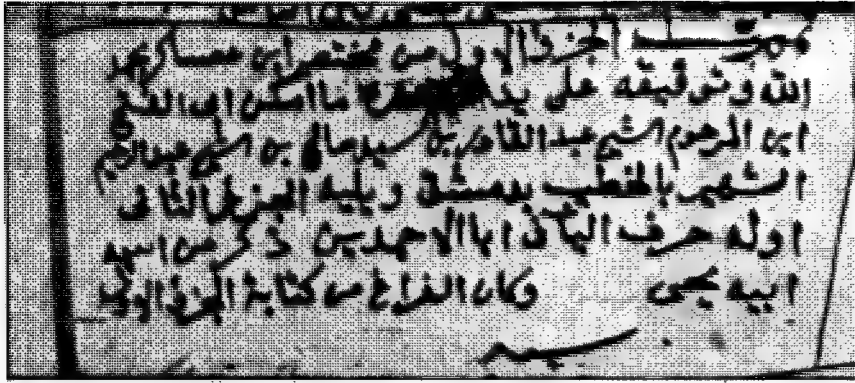 الجزء الاول من مختصر ابن عساكر بحمد
الله وتوفيقه على يد ابى الفتح
ابن المرحوم الشيخ عبد القادر بن السيد صالح بن الشيخ عبد الرحيم
الشهير بالخطيب بدمشق ويليه الجزء الثانى
اوله حرف فى ابا الاحمدين ذكر من اسم
ابيه يحيى وكان الفراغ من كتابة الجزء الاول